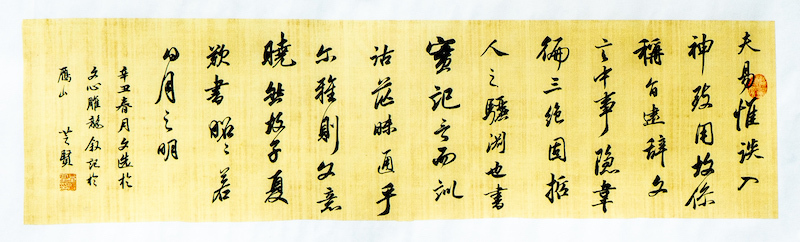 夫易惟談入
神致用故係
稱旨遠辭文
言中事隱韋
編三絕固哲
人之驪淵也書
實記言而訓
詁茫昧通乎
尔雅則文意
曉然故子夏
歎書昭々若
日月之明
辛丑春月文選於
文心雕龍叙記於
雁山